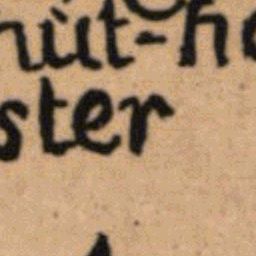 nùt-h
ster